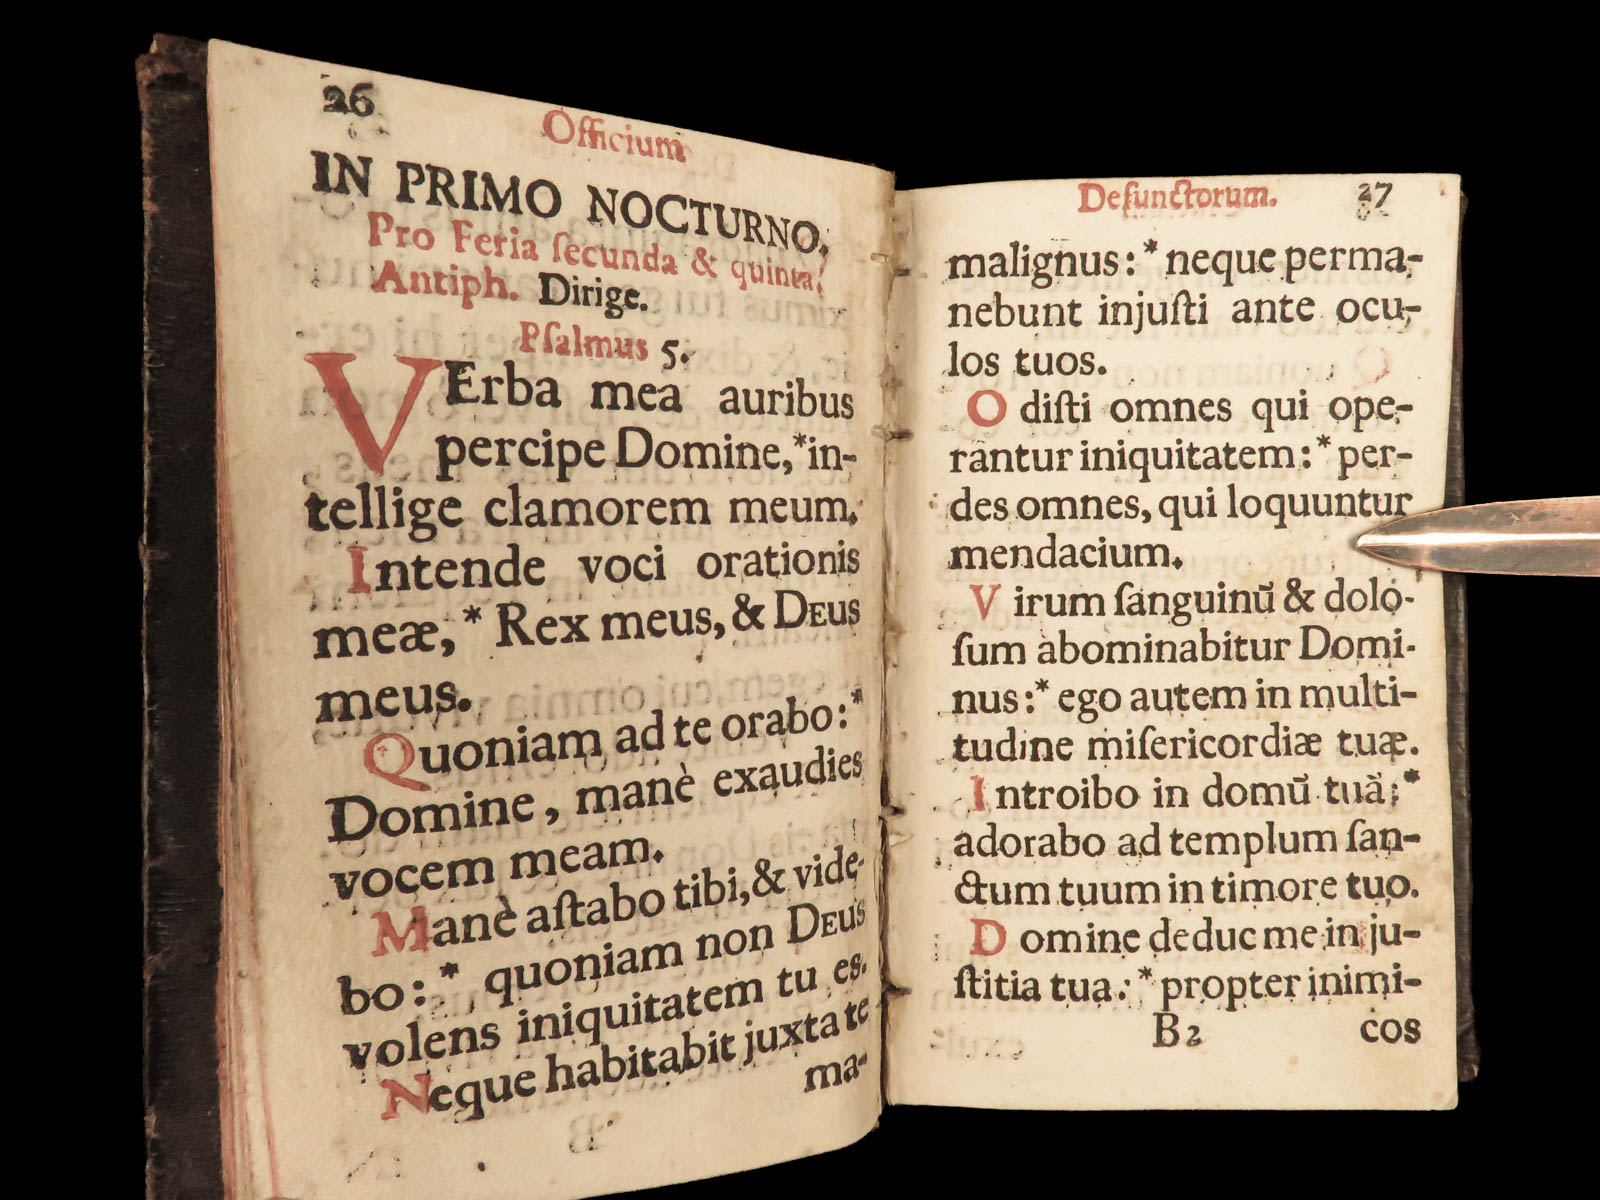 26
Officium
IN PRIMO NOCTURNO.
Pro Feria ſecunda & quinta.
Antiph. Dirige.
Pſalmus 5.
VErba mea auribus
percipe Domine,*in-
tellige clamorem meum.
Intende voci orationis
meæ,* Rex meus, & DEUS
meus.
Quoniam ad te orabo:*
Domine, manè exaudies
vocem meam.
Manè aſtabo tibi, & vide-
bo:* quoniam non DEUS
volens iniquitatem tu es.
Neque habitabit juxta te
ma-
Defunctorum. 27
malignus:* neque perma-
nebunt injuſti ante ocu-
los tuos.
Odiſti omnes qui ope-
rantur iniquitatem:* per-
des omnes, qui loquuntur
mendacium.
Virum ſanguinũ & dolo-
ſum abominabitur Domi-
nus:* ego autem in multi-
tudine miſericordiæ tuæ.
Introibo in domũ tuã:*
adorabo ad templum ſan-
ctum tuum in timore tuo.
Domine deduc me in ju-
ſtitia tua:* propter inimi-
B2 cos